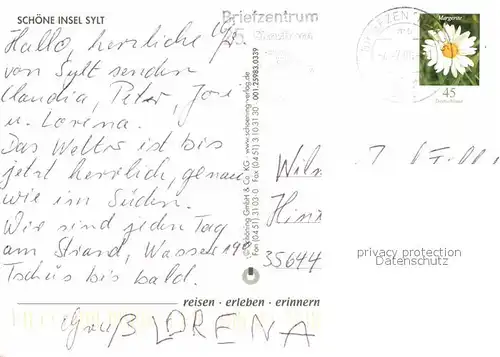 SCHÖNE INSEL SYLT
Hallo, herzliche
von Sylt senden
Claudia, Peter, José
u. Lorena.
Das Wetter ist bis
jetzt herrlich, genau
wie im Süden.
Wir sind jeden Tag
am Strand, Wasser 19°
Tschüs bis bald.
Gruß LORENA
Briefzentrum
BRIEFZEN
© Schöning GmbH & Co. KG • www.schoening-verlag.de
Fax (04 51) 3 10 31 30 001.25983.0339
reisen • erleben • erinnern
Margerite
45
Deutschland
35644
privacy protection
Datenschutz